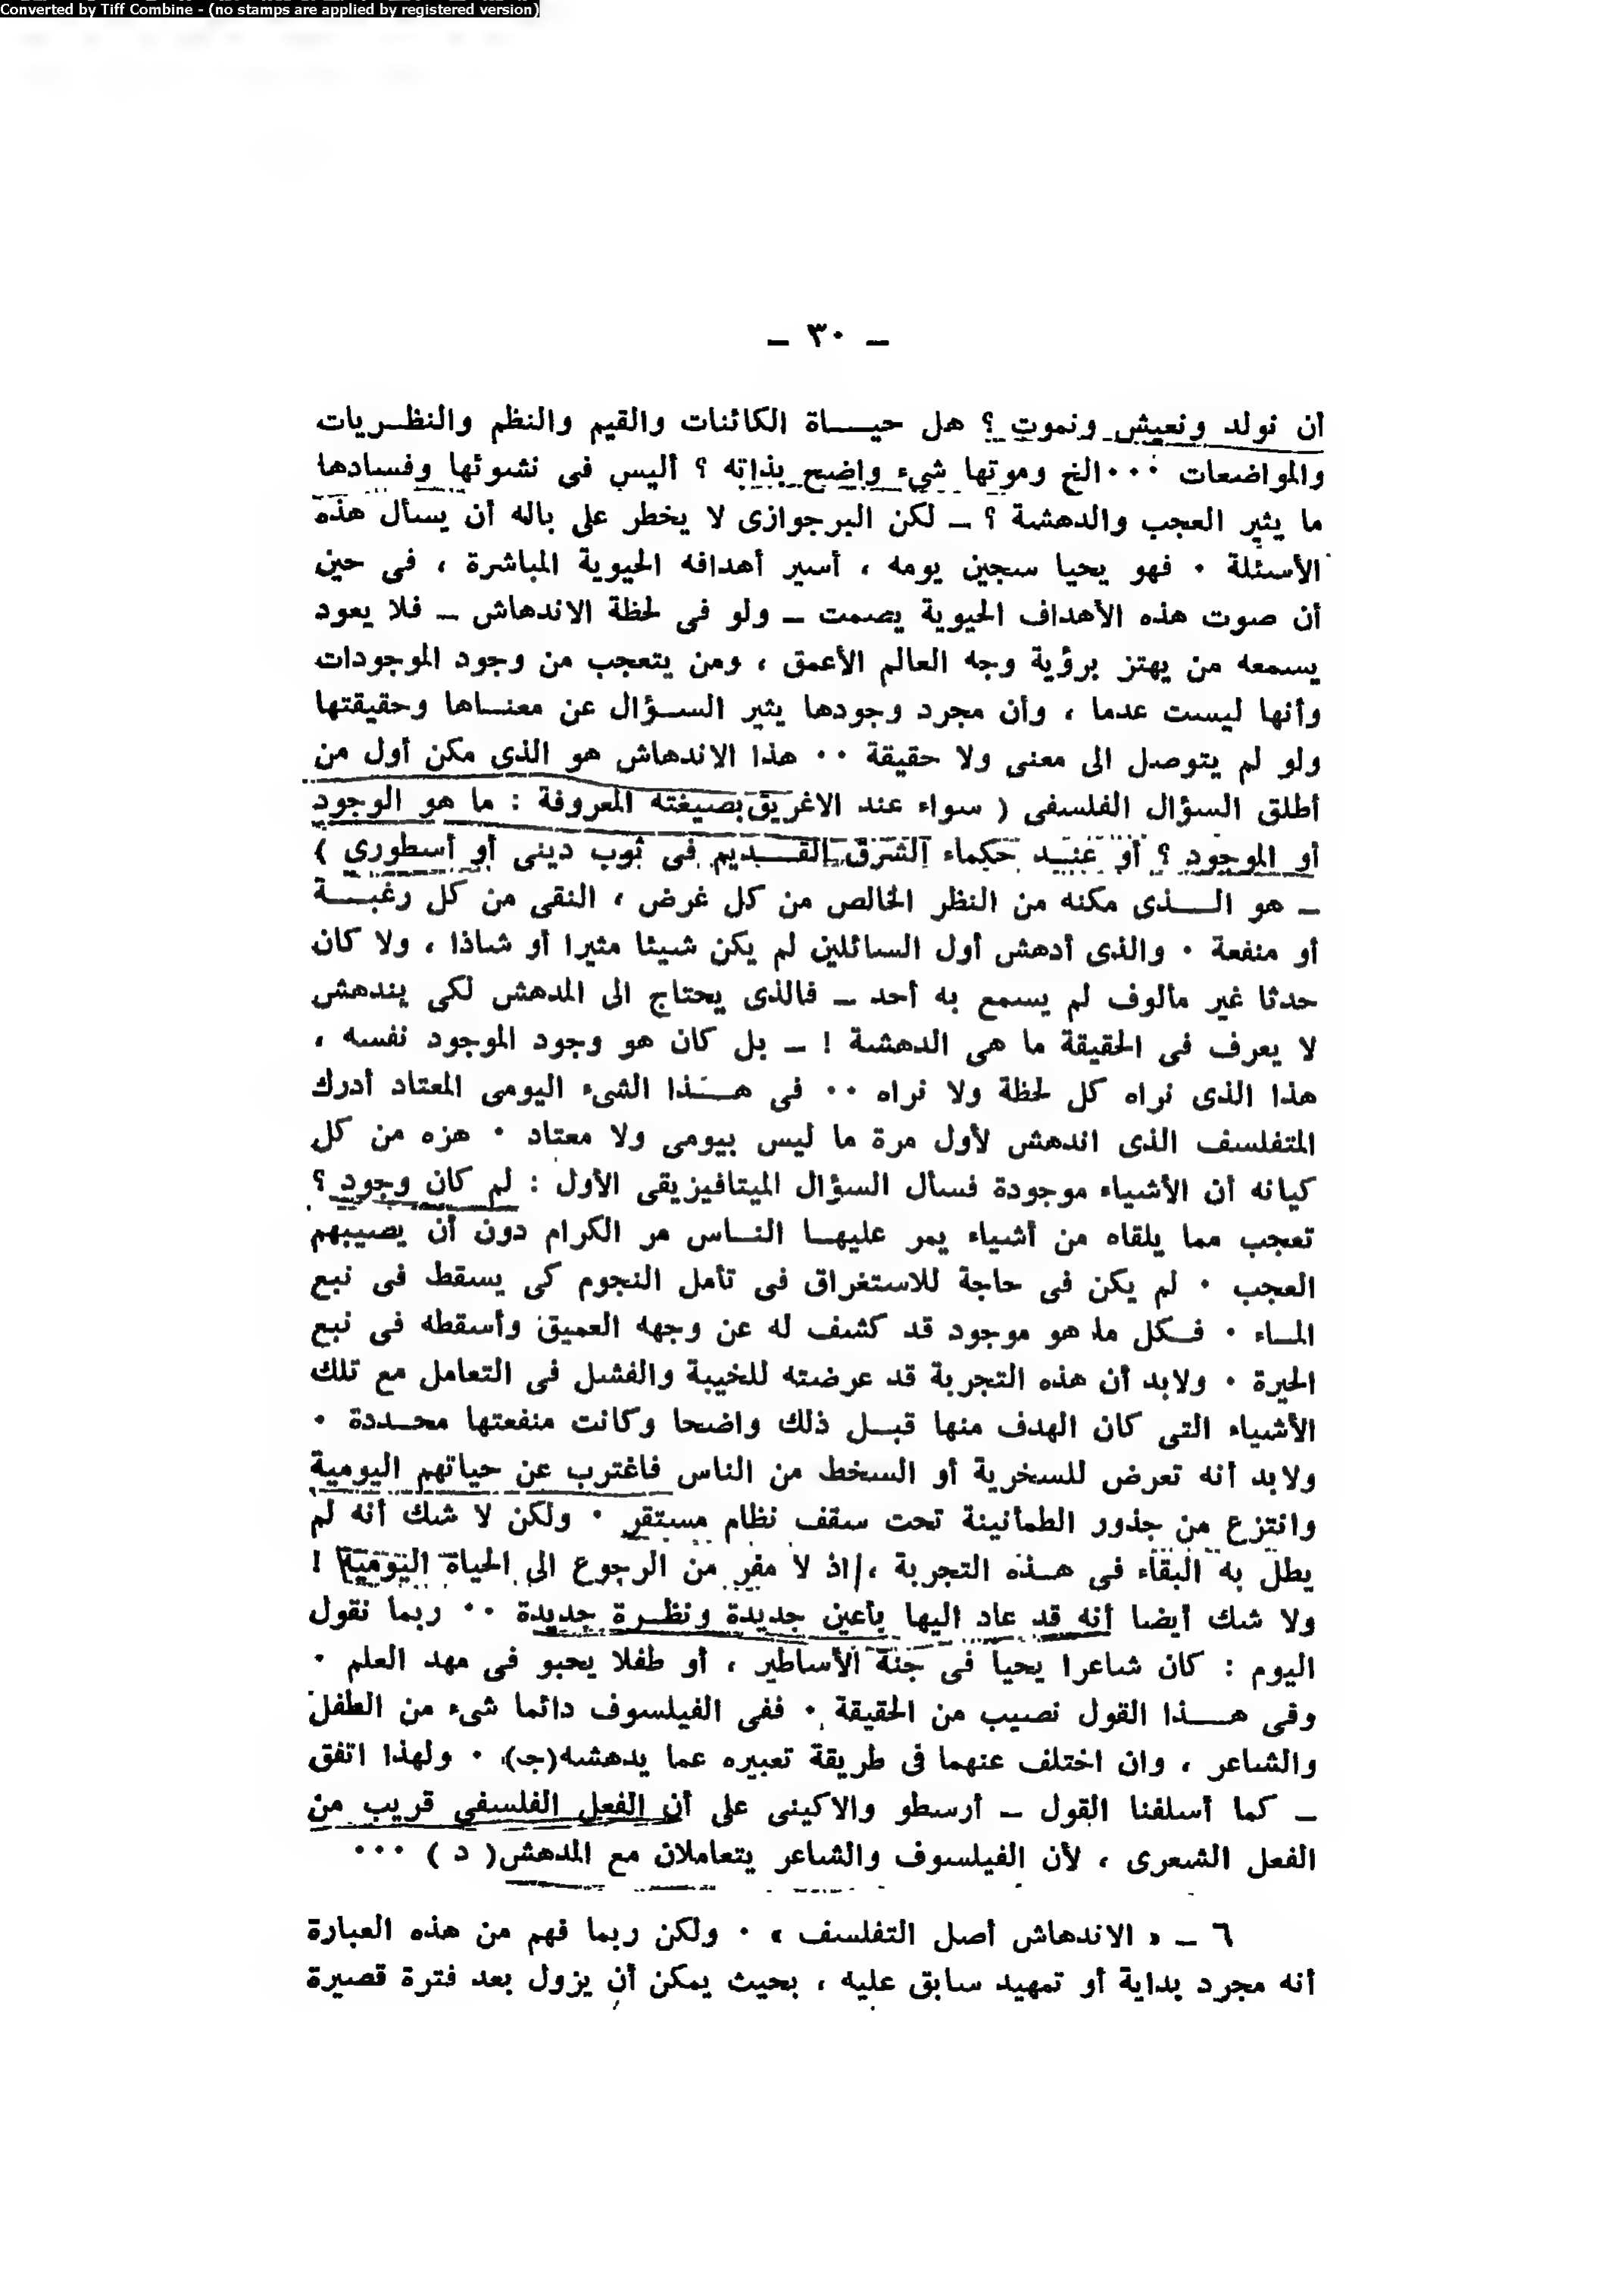 Converted by Tiff Combine - (no stamps are applied by registered version)
ـ ٣٠ ـ
أن نولد ونعيش ونموت ؟ هل حيـــاة الكائنات والقيم والنظم والنظـريات
والمواضعات ٠٠٠الخ وموتها شيء واضح بذاته ؟ أليس فى نشوئها وفسادها
ما يثير العجب والدهشة ؟ ـ لكن البرجوازى لا يخطر على باله أن يسأل هذه
الأسئلة ٠ فهو يحيا سجين يومه ، أسير أهدافه الحيوية المباشرة ، فى حين
أن صوت هذه الأهداف الحيوية يصمت ـ ولو فى لحظة الاندهاش ـ فلا يعود
يسمعه من يهتز برؤية وجه العالم الأعمق ، ومن يتعجب من وجود الموجودات
وأنها ليست عدما ، وأن مجرد وجودها يثير الســؤال عن معنـاها وحقيقتها
ولو لم يتوصل الى معنى ولا حقيقة ٠٠ هذا الاندهاش هو الذى مكن أول من
أطلق السؤال الفلسفى ( سواء عند الاغريق بصيغته المعروفة : ما هو الوجود
أو الموجود ؟ أو عنـد حكماء الشرق القــديم فى ثوب دينى أو أسطورى )
ـ هو الــذى مكنه من النظر الخالص من كل غرض ، النقى من كل رغبـــة
أو منفعة ٠ والذى أدهش أول السائلين لم يكن شيئا مثيرا أو شاذا ، ولا كان
حدثا غير مألوف لم يسمع به أحد ـ فالذى يحتاج الى المدهش لكى يندهش
لا يعرف فى الحقيقة ما هى الدهشة ! ـ بل كان هو وجود الموجود نفسه ،
هذا الذى نراه كل لحظة ولا نراه ٠٠ فى هـــذا الشىء اليومى المعتاد أدرك
المتفلسف الذى اندهش لأول مرة ما ليس بيومى ولا معتاد ٠ هزه من كل
كيانه أن الأشياء موجودة فسأل السؤال الميتافيزيقى الأول : لم كان وجود ؟
تعجب مما يلقاه من أشياء يمر عليهـا النـاس مر الكرام دون أن يصيبهم
العجب ٠ لم يكن فى حاجة للاستغراق فى تأمل النجوم كى يسقط فى نبع
المـاء ٠ فـكل ما هو موجود قد كشف له عن وجهه العميق وأسقطه فى نبع
الحيرة ٠ ولابد أن هذه التجربة قد عرضته للخيبة والفشل فى التعامل مع تلك
الأشياء التى كان الهدف منها قبـل ذلك واضحا وكانت منفعتها محـددة ٠
ولابد أنه تعرض للسخرية أو السخط من الناس فاغترب عن حياتهم اليومية
وانتزع من جذور الطمأنينة تحت سقف نظام مستقر ٠ ولكن لا شك أنه لم
يطل به البقاء فى هـذه التجربة ، اذ لا مفر من الرجوع الى الحياة اليومية !
ولا شك أيضا أنه قد عاد اليها بأعين جديدة ونظـرة جديدة ٠٠ ربما نقول
اليوم : كان شاعرا يحيا فى جنة الأساطير ، أو طفلا يحبو فى مهد العلم ٠
وفى هــذا القول نصيب من الحقيقة ٠ ففى الفيلسوف دائما شىء من الطفل
والشاعر ، وان اختلف عنهما فى طريقة تعبيره عما يدهشه(جـ) ٠ ولهذا اتفق
ـ كما أسلفنا القول ـ أرسطو والاكينى على أن الفعل الفلسفى قريب من
الفعل الشعرى ، لأن الفيلسوف والشاعر يتعاملان مع المدهش( د ) ٠٠٠
٦ ـ « الاندهاش أصل التفلسف » ٠ ولكن ربما فهم من هذه العبارة
أنه مجرد بداية أو تمهيد سابق عليه ، بحيث يمكن أن يزول بعد فترة قصيرة